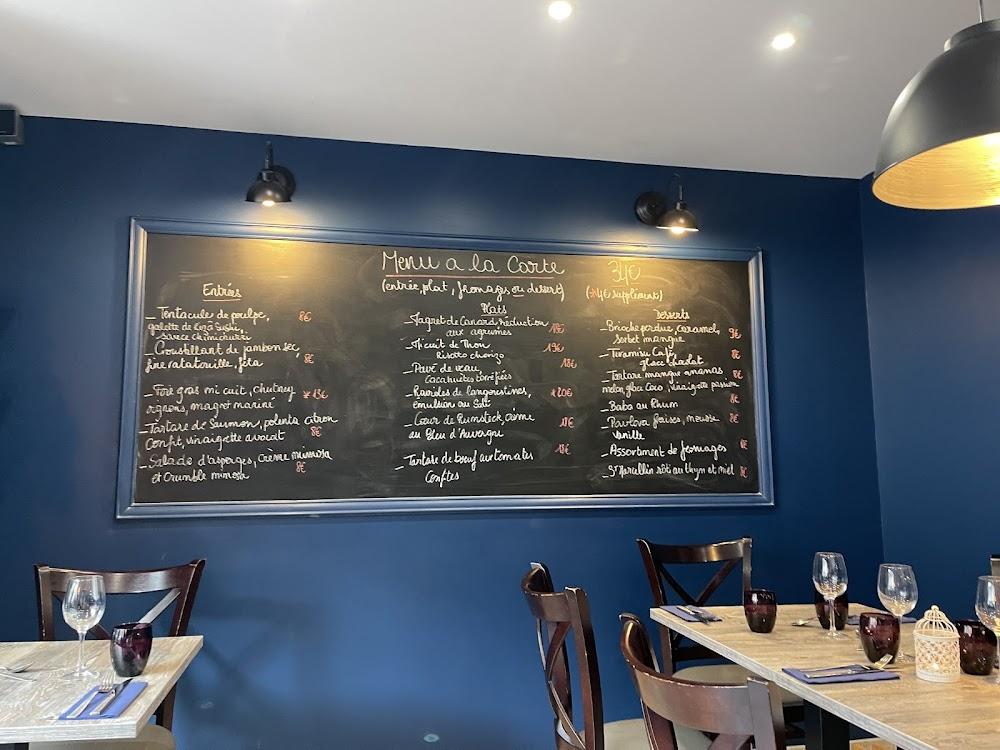 Menu a la Carte 34€
(entrée, plat, fromages ou dessert) (*4€ supplément)
Entrées
_ Tentacule de poulpe, 8€
galette de riz à sushi,
sauce chimichurri
_ Croustillant de jambon sec
fine ratatouille, feta 8€
_ Foie gras mi cuit, chutney *13€
oignons, magret mariné
_ Tartare de Saumon, polenta citron
Confit, vinaigrette avocat 8€
_ Salade d'asperges, crème mimosa
et Crumble mimosa 8€
Plats
_ Magret de Canard Réduction
aux agrumes
_ Mi cuit de Thon 19€
Risotto chorizo
_ Pavé de veau, 18€
Cacahuètes torréfiées
_ Ravioles de langoustines, *20€
émulsion au
_ Cœur de Rumsteck, crème 17€
au Bleu d'Auvergne
_ Tartare de bœuf aux tomates 18€
Confites
Desserts
_ Brioche perdue, caramel, 9€
sorbet mangue
_ Tiramisu Café, 8€
glace chocolat
_ Tartare mangue ananas 8€
melon, glace Coco, vinaigrette passion
_ Baba au Rhum 8€
_ Pavlova fraises, mousse 8€
vanille
_ Assortiment de fromages 8€
_ St Marcellin rôti au thym et miel 8€